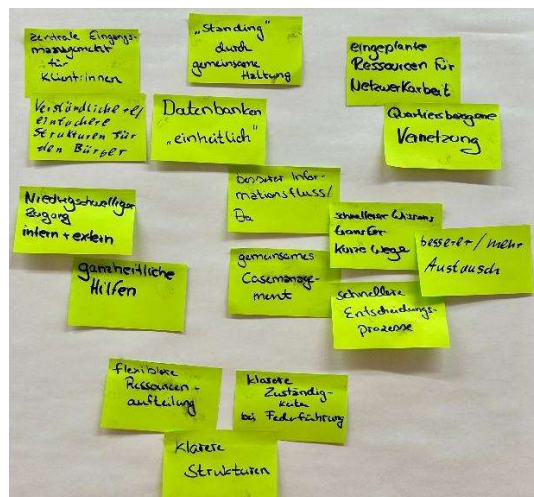 zentrale Eingangs-
management
für
Klient:innen
„Standing"
durch
gemeinsame
Haltung
eingeplante
Ressourcen für
Netzwerkarbeit
Verständlichere/
einfachere
Strukturen für
den Bürger
Datenbanken
„einheitlich"
Quartiersbezogene
Vernetzung
besserer Infor-
mationsfluss/
Niedrigschwelliger
Zugang
intern + extern
schnellerer Wissens
transfer
Kurze Wege
besserer / mehr
Austausch
ganzheitliche
Hilfen
gemeinsames
Casemanage-
ment
schnellere
Entscheidungs-
prozesse
flexiblere
Ressourcen-
aufteilung
Klarere
Zuständig-
keiten
bei Federführung
Klarere
Strukturen